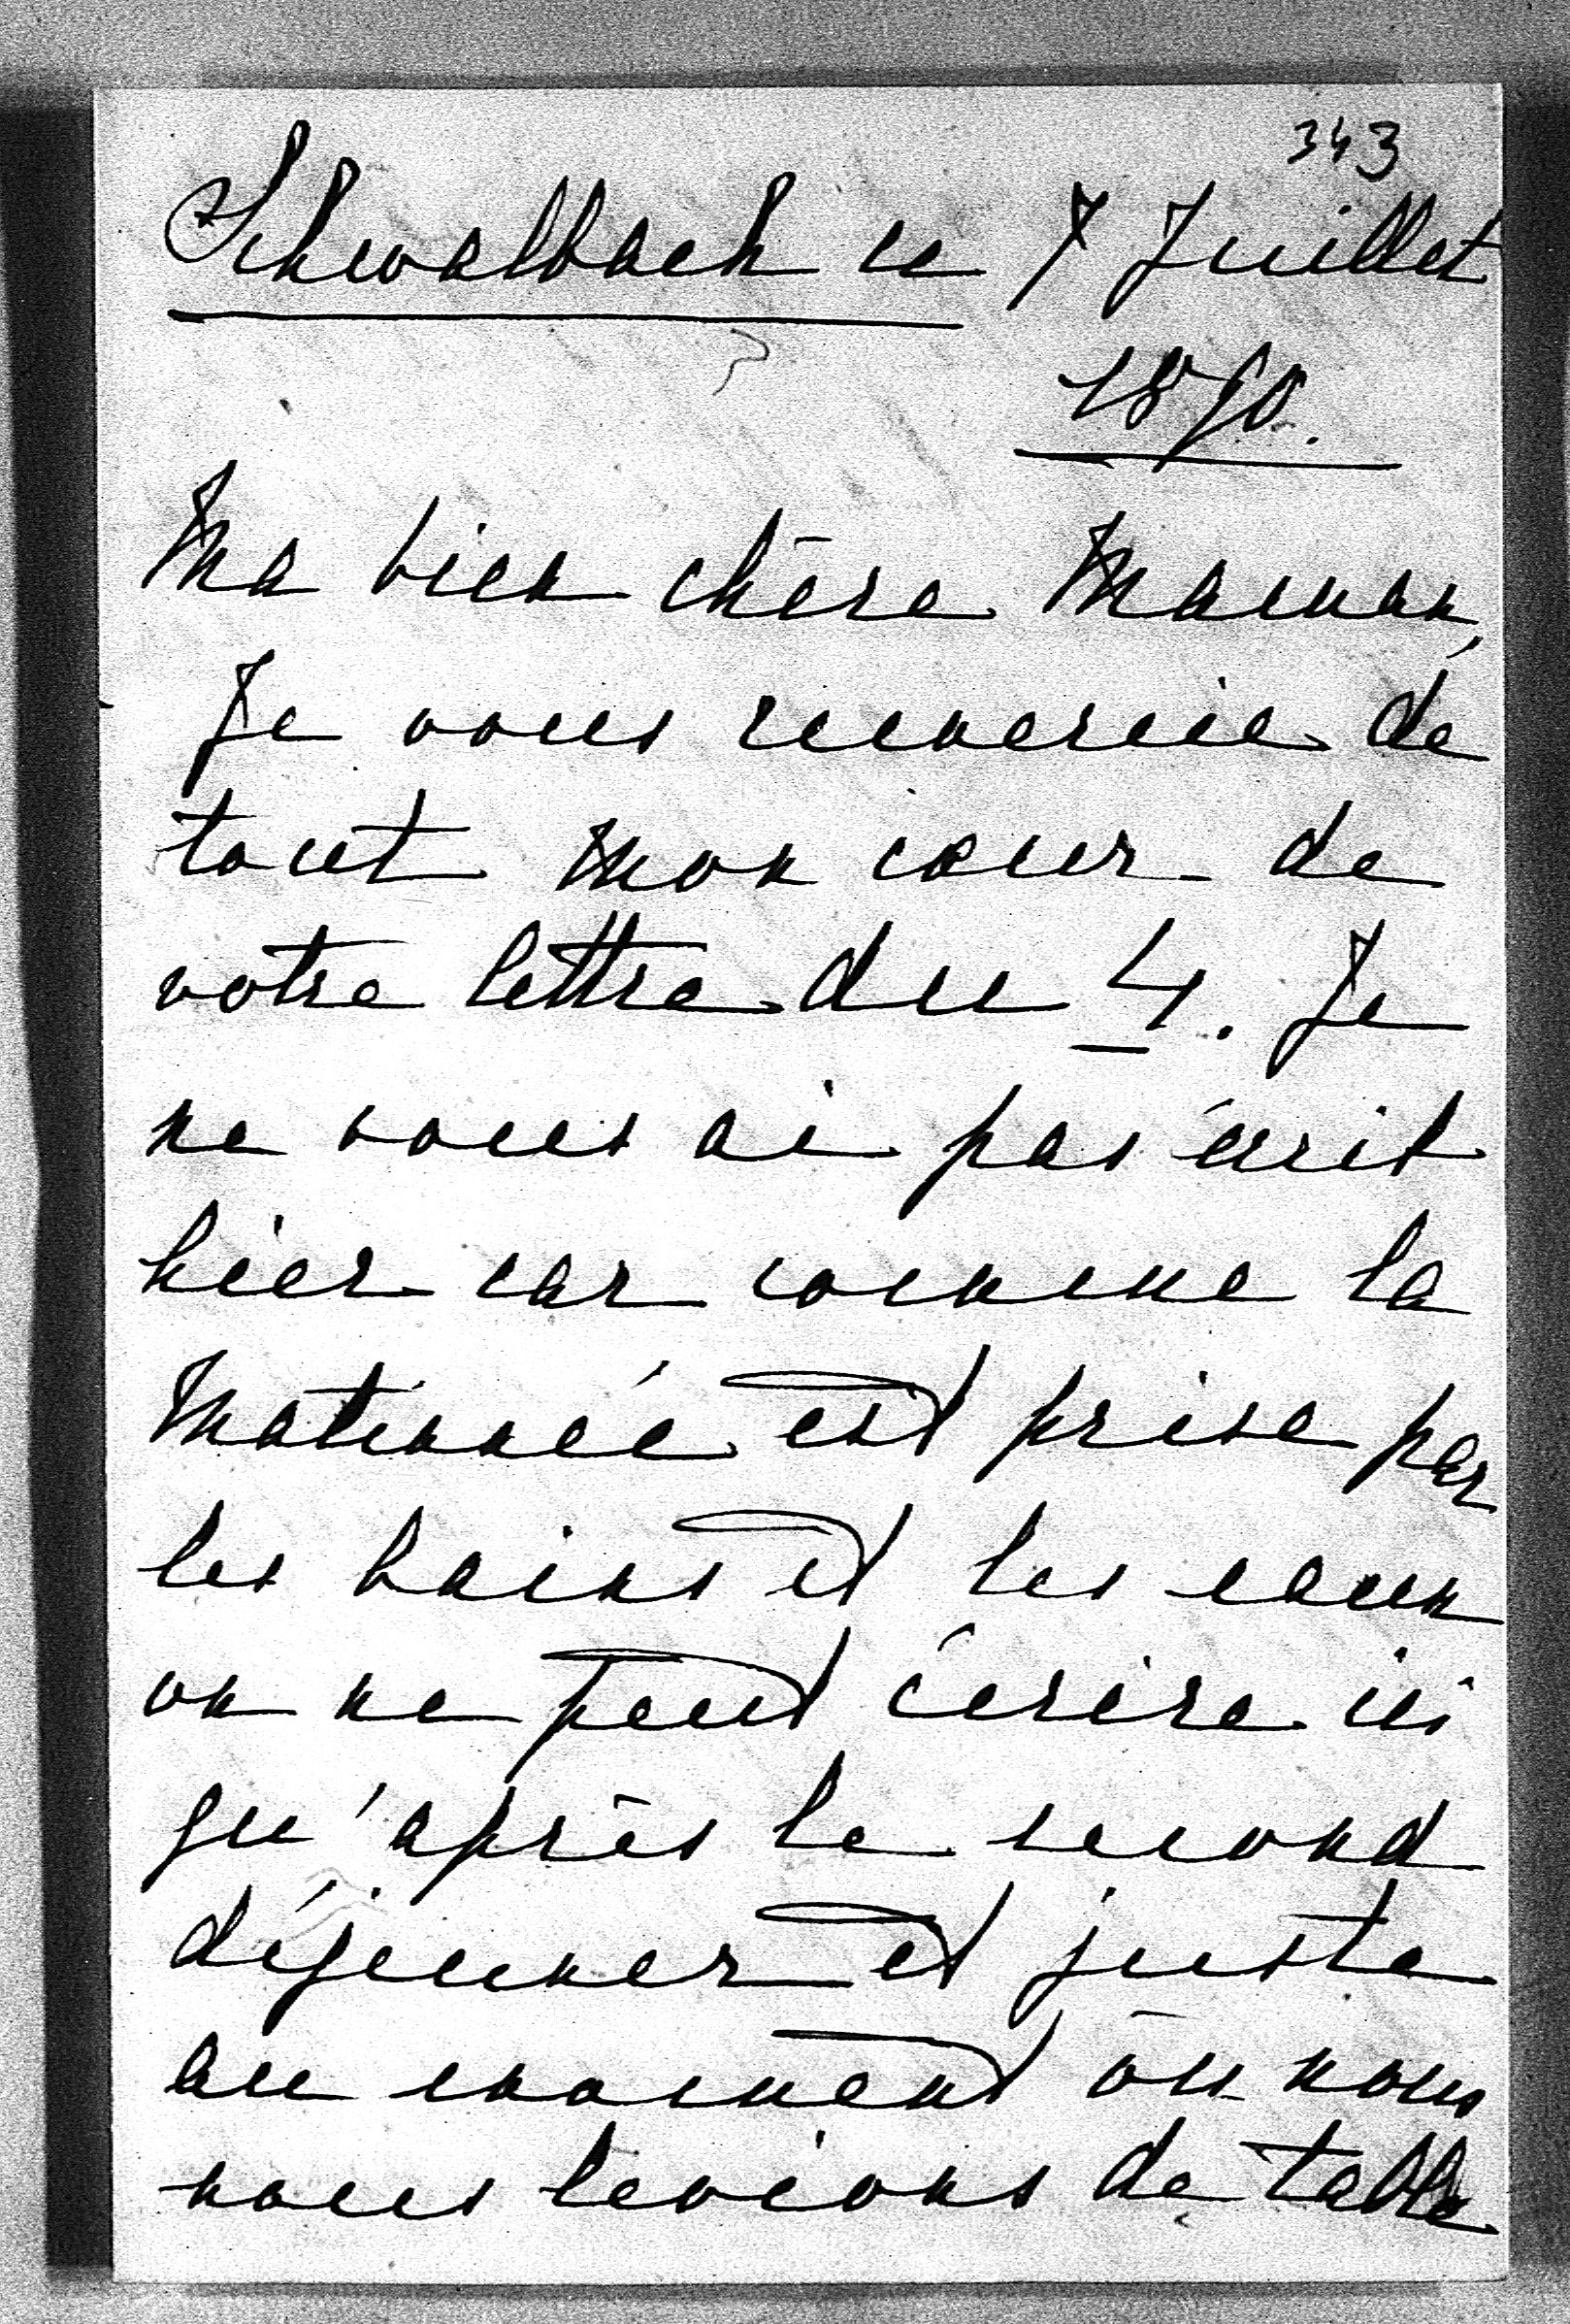 343
Schwalbach ce 7 Juillet
1890.
Ma bien chère Maman,
Je vous remercie de
tout mon cœur de
votre lettre du 4. Je
ne vous ai pas écrit
hier car comme la
matinée est prise par
les bains et les eaux
on ne peut écrire ici
qu'après le second
déjeuner et juste
au moment où nous
nous levions de table